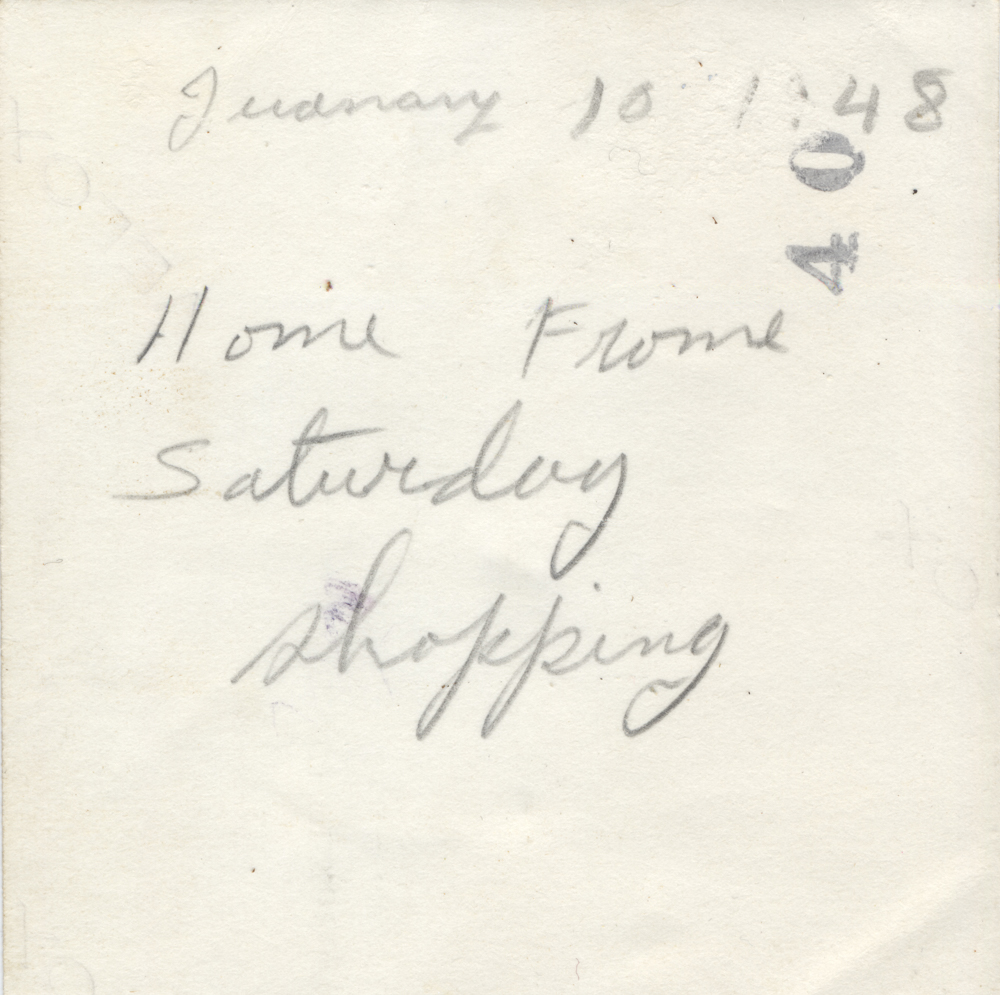 Juanary 10 1948
Home Frome
Saturday
shopping
40